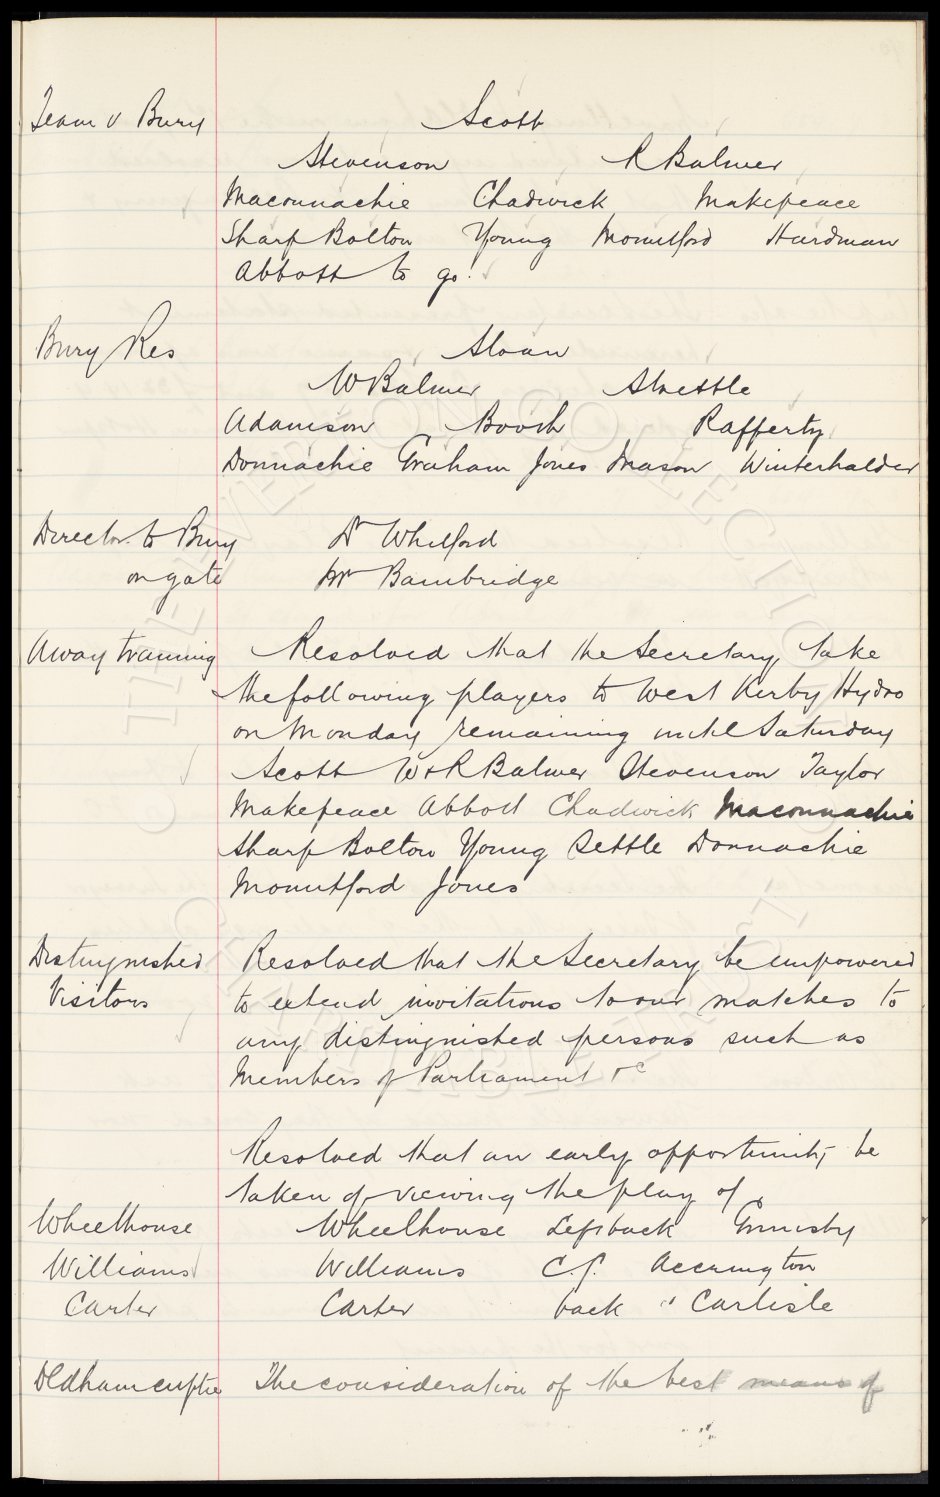 Team v Bury Scott
Stevenson R Balmer
Maconnachie Chadwick Makepeace
Sharp Bolton Young Mountford Hardman
Abbott to go.
Bury Res Sloan
W Balmer Strettle
Adamson Booth Rafferty
Donnachie Graham Jones Mason Winterhalder
Director to Bury Dr Whitford
on gate Mr Bainbridge
Away training Resolved that the Secretary take
the following players to West Kirby Hydro
on Monday remaining until Saturday
Scott W & R Balmer Stevenson Taylor
Makepeace Abbott Chadwick Maconnachie
Sharp Bolton Young Settle Donnachie
Mountford Jones
Distinguished Resolved that the Secretary be empowered
Visitors to extend invitations to our matches to
any distinguished persons such as
Members of Parliament &c
Resolved that an early opportunity be
taken of viewing the play of
Wheelhouse Wheelhouse Left back Grimsby
Williams Williams C.f. Accrington
Carter Carter back " Carlisle
Oldham cup tie The consideration of the best means of
THE EVERTON COLLECTION
CHARITABLE TRUST